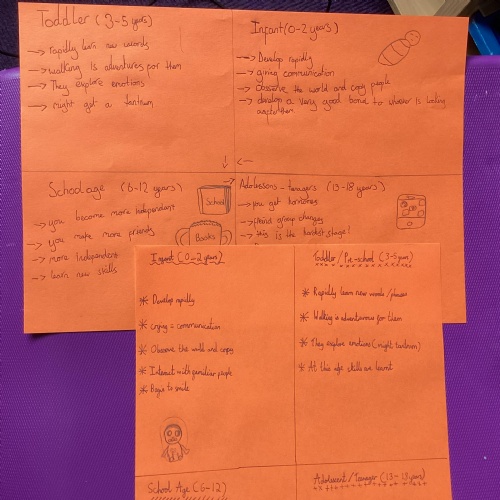 Toddler (3-5 years)
→ rapidly learn new words
→ walking is adventures for them
→ They explore emotions
→ might get a tantrum
Infant (0-2 years)
→ Develop rapidly
→ giving communication
→ observe the world and copy people
→ develop a very good bond to whoever is looking
after them
School age (6-12 years)
→ you become more independent
→ you make more friends
→ more independent
→ learn new skills
School
Books
Adolessons - teenagers (13-18 years)
→ you get hormones
→ friend group changes
→ this is the hardest stage!
Infant (0-2 years)
* Develop rapidly
* crying = communication
* Observe the world and copy
* Interact with familiar people
* Begin to smile
Toddler / Pre-school (3-5 years)
* Rapidly learn new words / phrases
* Walking is adventurous for them
* They explore emotions (might tantrum)
* At this age skills are learnt
School Age (6-12)
Adolescent / Teenager (13-18 years)